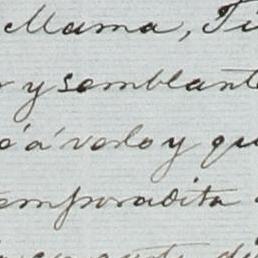 Mama, Ti
y semblante
á verlo y qu
temporadita